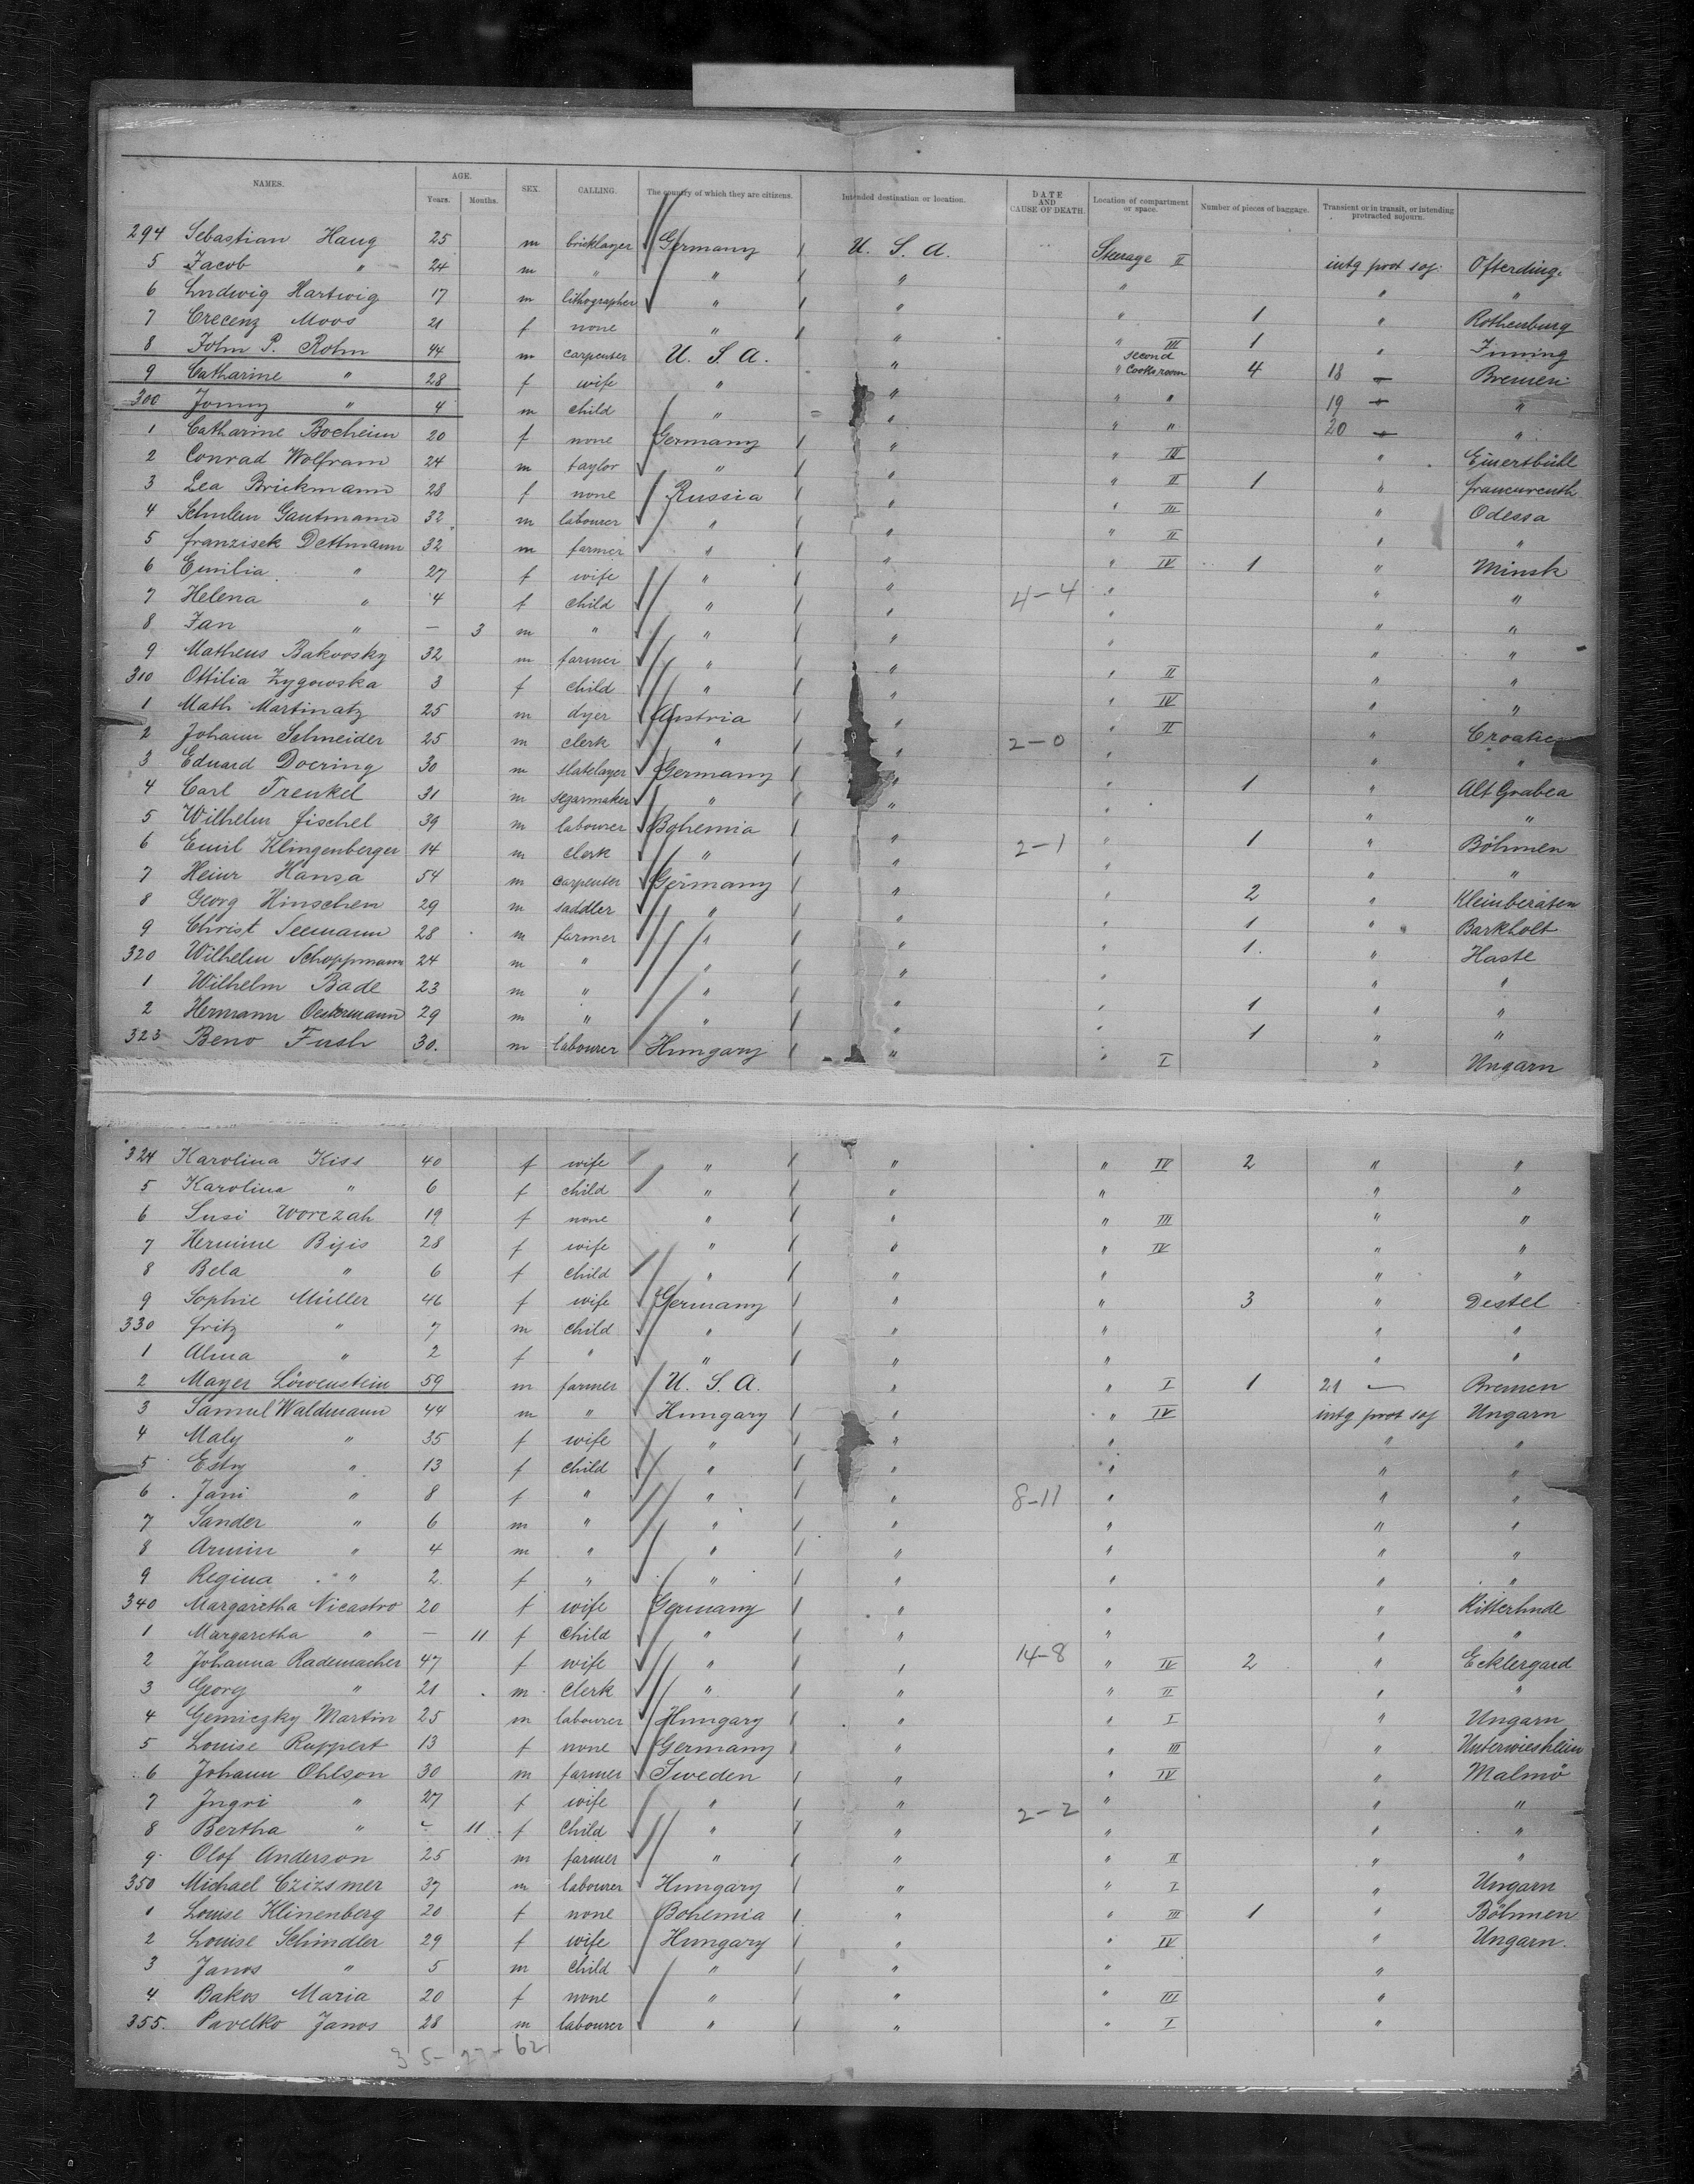 NAMES. AGE. Years. Months. SEX. CALLING. The country of which they are citizens. Intended destination or location. DATE AND CAUSE OF DEATH. Location of compartment or space. Number of pieces of baggage. Transient or in transit, or intending protracted sojourn.
294 Sebastian Haug 25 m bricklayer Germany U. S. A. Steerage II intg prot soj. Ofterding.
5 Jacob " 24 m " " " " " "
6 Ludwig Hartwig 17 m lithographer " " " 1 " Rothenburg
7 Crecenz Moos 21 f none " " " III 1 "
8 John P. Rohm 44 m carpenter U. S. A. " second " Cooks room 4 18 — Bremen
9 Catharine " 28 f wife " " " " 19 — "
300 Jonny " 4 m child " " " " 20 — "
1 Catharine Bocheim 20 f none Germany " " III "
2 Conrad Wolfram 24 m taylor " " " II 1 "
3 Lea Brickmann 28 f none Russia " " III " Odessa
4 Schulem Gautmann 32 m labourer " " " II " "
5 franzisek Dethmann 32 m farmer " " " IV 1 " Minsk
6 Emilia " 27 f wife " " 4-4 " " "
7 Helena " 4 f child " " " " "
8 Jan " — 3 m " " " " " "
9 Matheus Bakovsky 32 m farmer " " " II " "
310 Ottilia Zygowska 3 f child " " " IV " "
1 Math Martinatz 25 m dyer Austria " " II "
2 Johann Schneider 25 m clerk " " 2-0 " " "
3 Eduard Doering 30 m slatelayer Germany " " 1 " Alt Grabea
4 Carl Trenkel 31 m segarmaker " " " " "
5 Wilhelm fischel 39 m labourer Bohemia " 2-1 " 1 " Böhmen
6 Emil Klingenberger 14 m clerk " " " " "
7 Heinr Hansa 54 m carpenter Germany " " 2 "
8 Georg Hinschen 29 m saddler " " " 1 " Barkholt
9 Christ Seemann 28 m farmer " " " 1. " Haste
320 Wilhelm Schoppmann 24 m " " " " " "
1 Wilhelm Bade 23 m " " " " 1 " "
2 Hermann Oestermann 29 m " " " " 1 " "
323 Beno Fush 30. m labourer Hungary " " I " Ungarn
324 Karolina Kiss 40 f wife " " " IV 2 " "
5 Karolina " 6 f child " " " " "
6 Susi Worczah 19 f none " " " III " "
7 Hermine Bijis 28 f wife " " " IV " "
8 Bela " 6 f child " " " " "
9 Sophie Müller 46 f wife Germany " " 3 " Destel
330 fritz " 7 m child " " " " "
1 Alma " 2 f " " " " " "
2 Mayer Löwenstein 59 m farmer U. S. A. " " I 1 21 — Bremen
3 Samuel Waldmann 44 m " Hungary " " IV intg prot soj Ungarn
4 Maly " 35 f wife " " " " "
5 Estry " 13 f child " " " " "
6 Jani " 8 f " " " 8-11 " " "
7 Sander " 6 m " " " " " "
8 Armin " 4 m " " " " " "
9 Regina " 2 f " " " " " "
340 Margaretha Nicastro 20 f wife Germany " " " Ritterhude
1 Margaretha " — 11 f child " " " " "
2 Johanna Rademacher 47 f wife " " 14-8 " IV 2 "
3 Georg " 21 m clerk " " " II " "
4 Gemiczky Martin 25 m labourer Hungary " " I " Ungarn
5 Louise Ruppert 13 f none Germany " " III "
6 Johann Ohlson 30 m farmer Sweden " " IV " Malmö
7 Ingri " 27 f wife " " 2-2 " " "
8 Bertha " — 11 f child " " " " "
9 Olof Anderson 25 m farmer " " " II " "
350 Michael Czizsmer 37 m labourer Hungary " " I " Ungarn
1 Louise Klinenberg 20 f none Bohemia " " III 1 " Böhmen
2 Louise Schindler 29 f wife Hungary " " IV " Ungarn.
3 Janos " 5 m child " " " "
4 Bakos Maria 20 f none " " " III "
355. Pavelko Janos 28 m labourer " " " I "